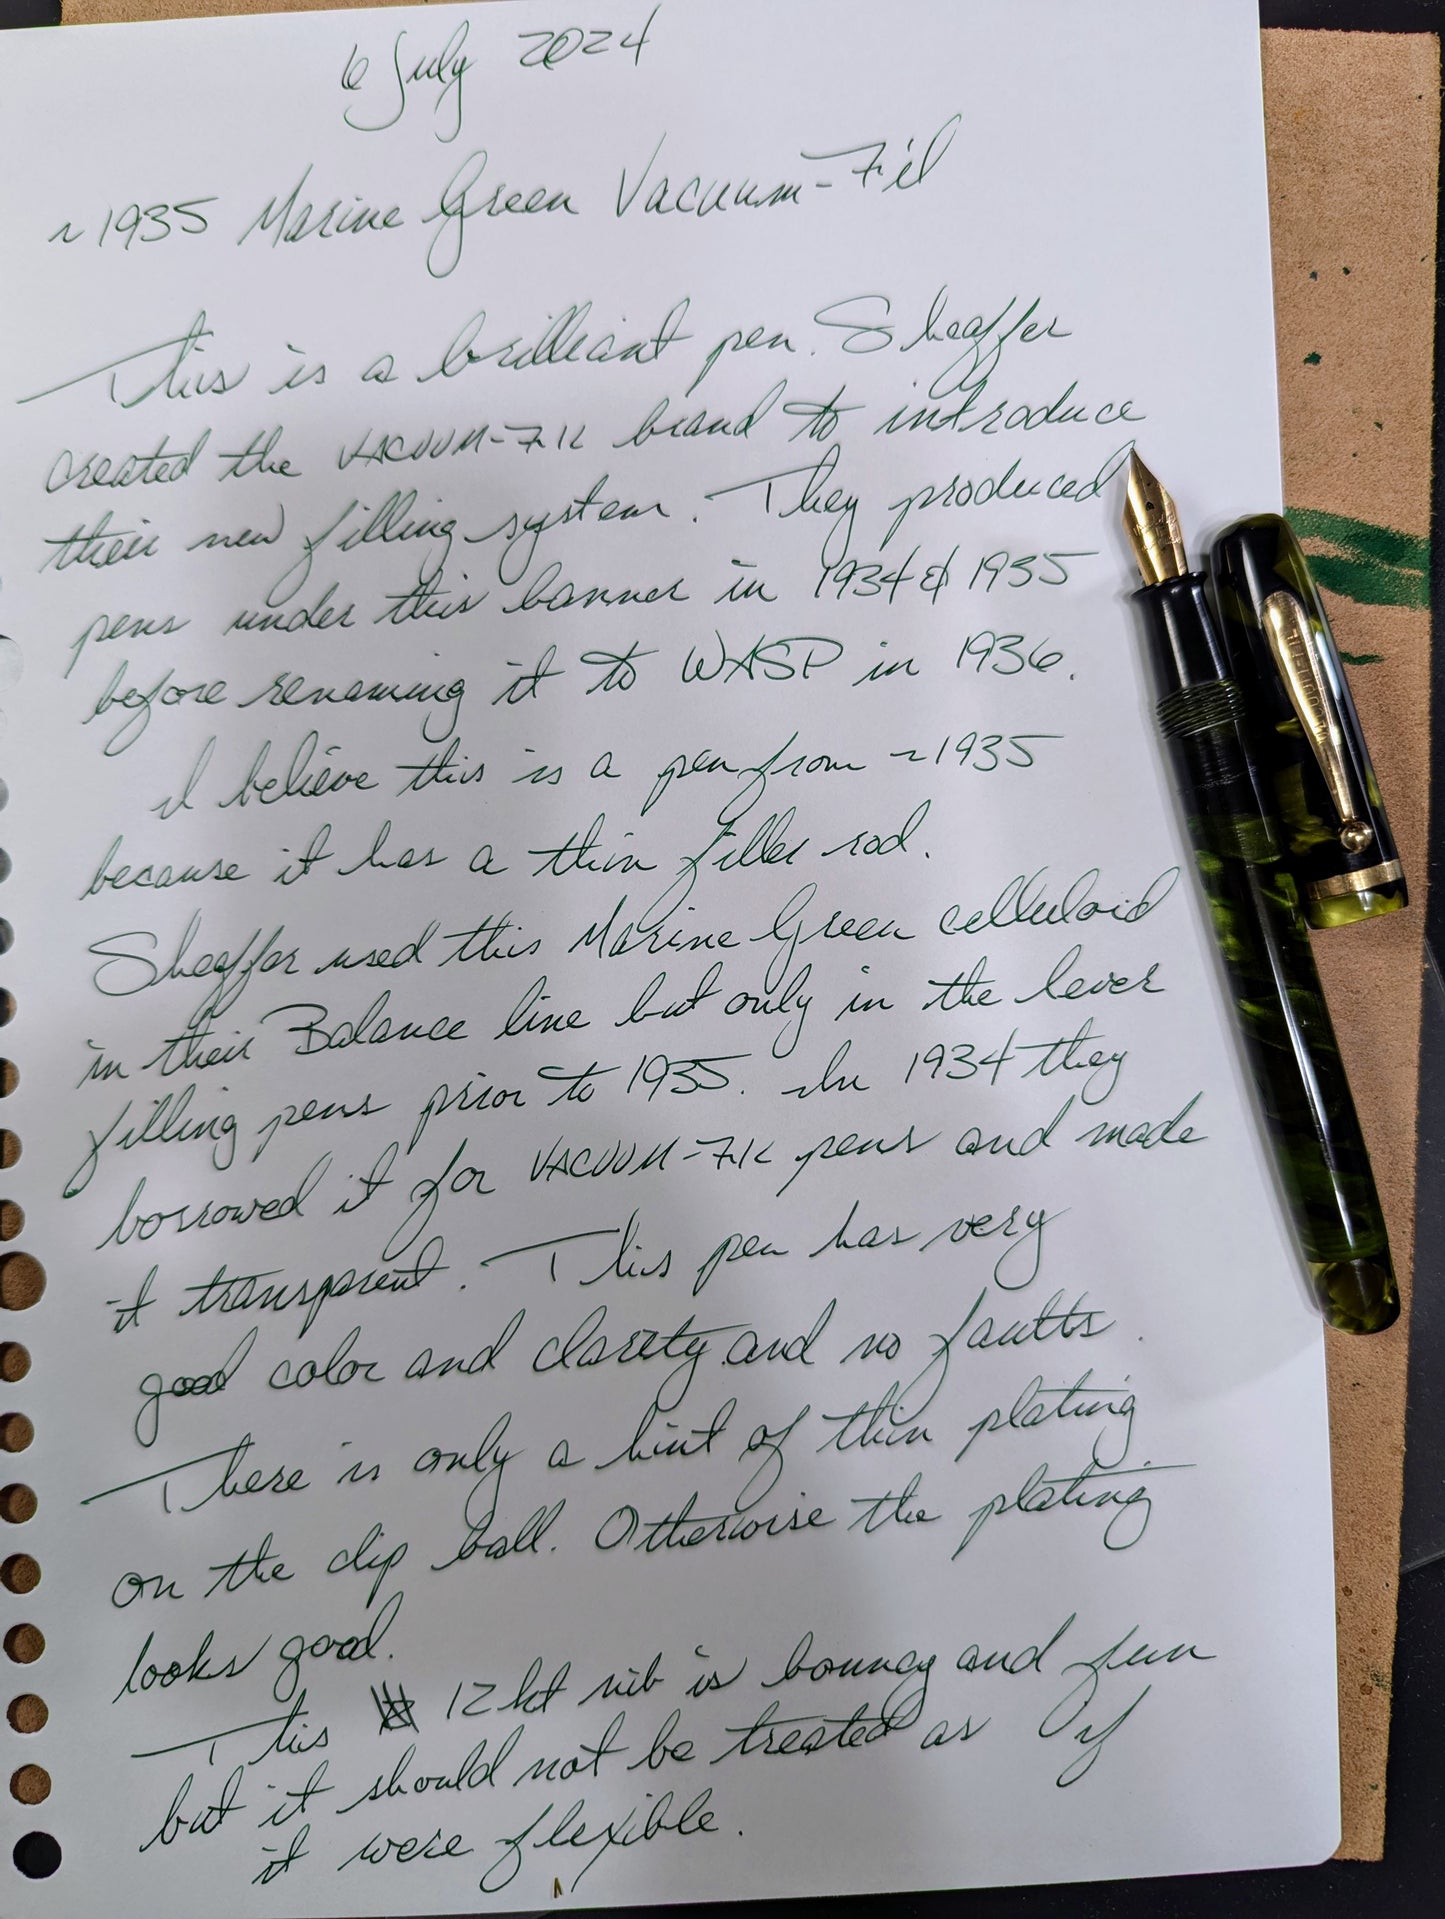 6 July 2024
~1935 Marine Green Vacuum-Fil
This is a brilliant pen. Sheaffer
created the VACUUM-FIL brand to introduce
their new filling system. They produced
pens under this banner in 1934 & 1935
before renaming it to WASP in 1936.
I believe this is a pen from ~1935
because it has a thin filler rod.
Sheaffer used this Marine Green celluloid
in their Balance line but only in the lever
filling pens prior to 1935. In 1934 they
borrowed it for VACUUM-FIL pens and made
it transparent. This pen has very
good color and clarity and no faults.
There is only a hint of thin plating
on the clip ball. Otherwise the plating
looks good.
This 12kt nib is bouncy and fun
but it should not be treated as if
it were flexible.
VACUUM-FIL